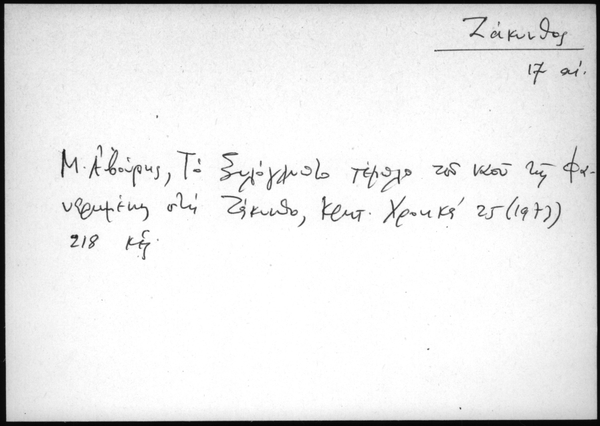 Ζάκυνθος
17 αἰ.
Μ. Ἀβούρης, Τὸ ξυλόγλυπτο τέμπλο τοῦ ναοῦ τῆς Φα-
νερωμένης στὴ Ζάκυνθο, Κρητ. Χρονικά 25 (1973)
218 κἑ.